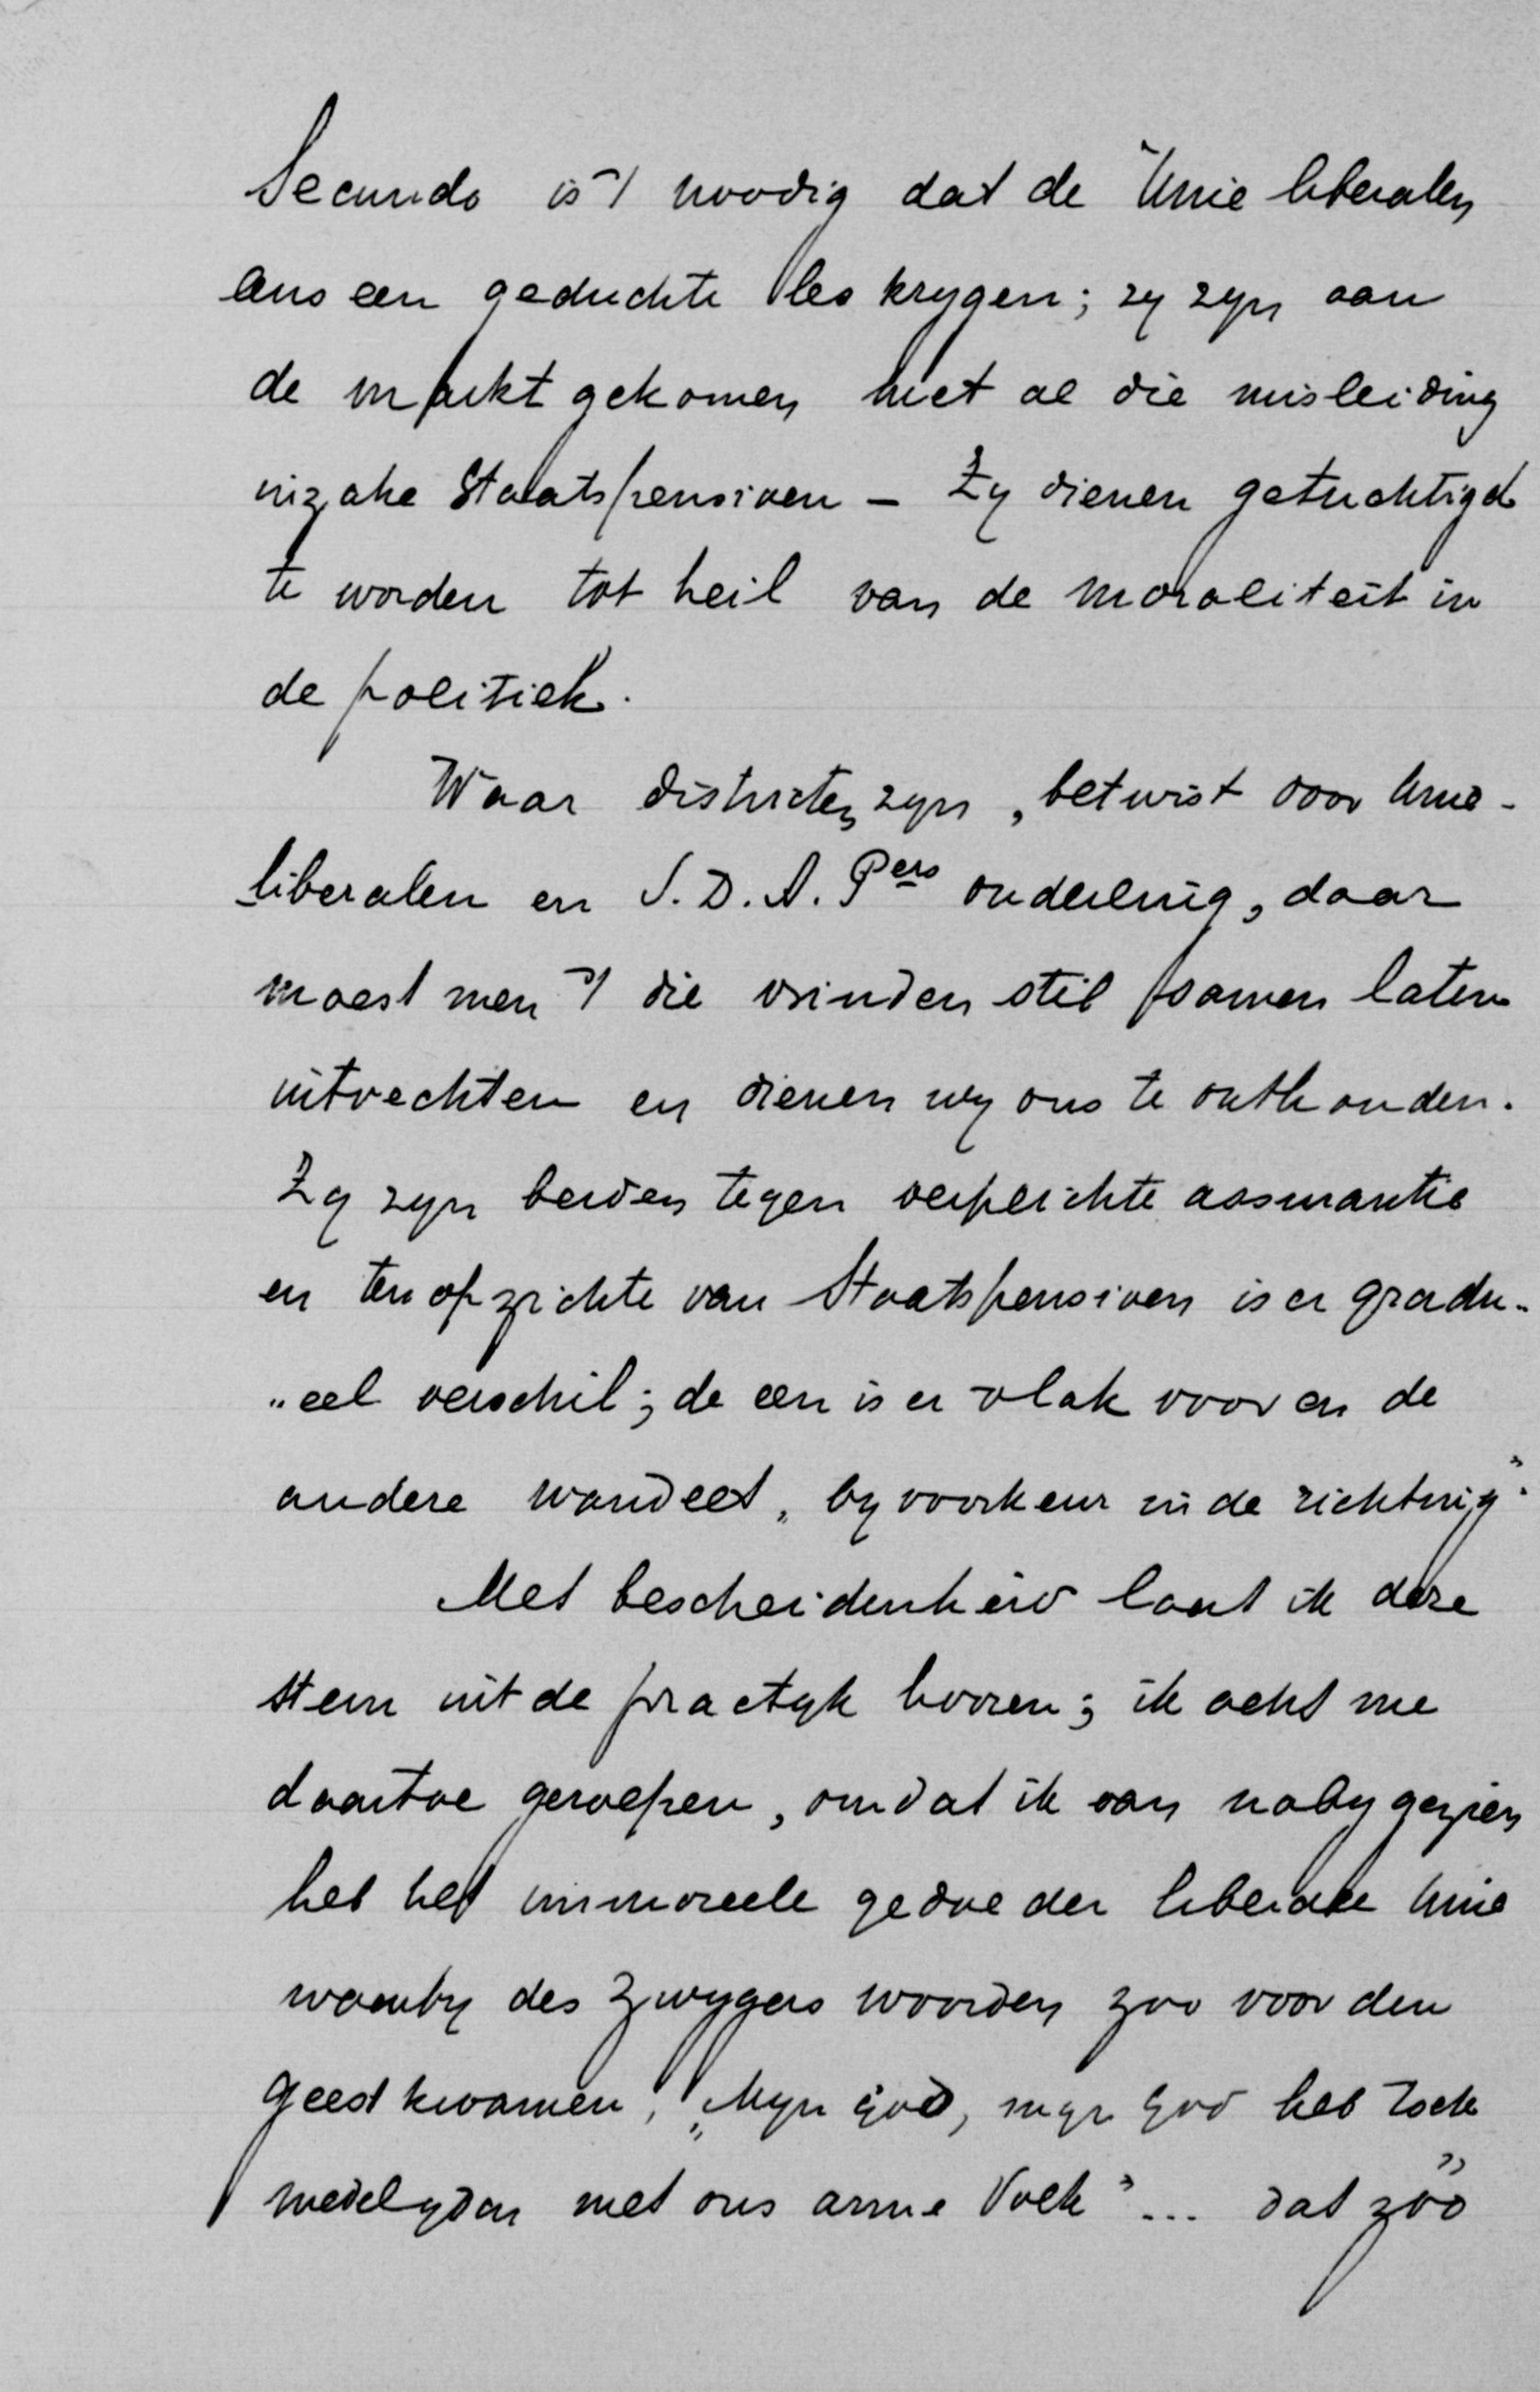 Secundo is 't noodig dat de Unie liberalen
ons een geduchte les krygen; zy zyn aan
de markt gekomen met al die misleiding
inzake Staatspensioen – Zy dienen getuchtigd
te worden tot heil van de moraliteit in
de politiek.
Waar districten zyn, betwist door Unie-
liberalen en S.D.A.Pers onderling, daar
moest men 't die vrinden stil samen laten
uitvechten en dienen wy ons te onthouden.
Zy zyn beiden tegen verplichte assurantie
en ten opzichte van Staatspensioen is er gradu-
„eel verschil; de een is er vlak voor en de
andere wandelt „by voorkeur in de richting"
Met bescheidenheid laat ik deze
stem uit de practyk hooren; ik acht me
daartoe geroepen, omdat ik van naby gezien
heb het immoreele gedoe der liberale Unie
waarby des Zwygers woorden zoo voor den
geest kwamen, „Myn God, myn God heb toch
medelyden met ons arme Volk" ... dat zóó